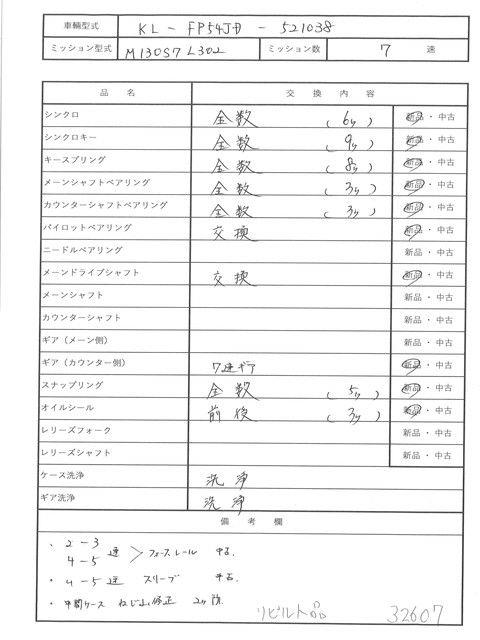 車輌型式 KL-FP54JD-521038
ミッション型式 M130S7 L302 ミッション数 7 速
品名 交換内容
シンクロ 全数 (6ヶ) 新品・中古
シンクロキー 全数 (9ヶ) 新品・中古
キースプリング 全数 (8ヶ) 新品・中古
メーンシャフトベアリング 全数 (3ヶ) 新品・中古
カウンターシャフトベアリング 全数 (3ヶ) 新品・中古
パイロットベアリング 交換 新品・中古
ニードルベアリング 新品・中古
メーンドライブシャフト 交換 新品・中古
メーンシャフト 新品・中古
カウンターシャフト 新品・中古
ギア(メーン側) 新品・中古
ギア(カウンター側) 7速ギア 新品・中古
スナップリング 全数 (5ヶ) 新品・中古
オイルシール 前後 (3ヶ) 新品・中古
レリーズフォーク 新品・中古
レリーズシャフト 新品・中古
ケース洗浄 洗浄
ギア洗浄 洗浄
備考欄
・2-3
4-5 速 > フォースレール 中古.
・4-5速 スリーブ 中古.
・中間ケース ねじ山修正 2ヶ所.
リビルト品 32607